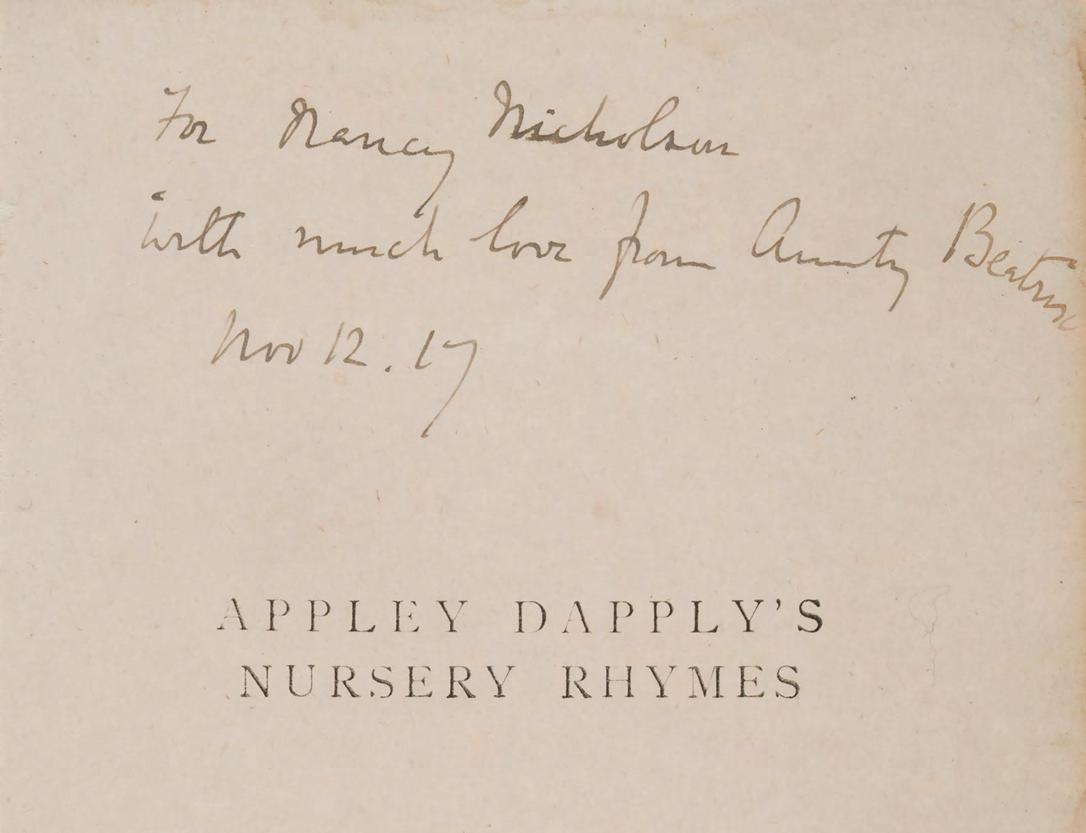 For Nancy Nicholson
with much love from Aunty Beatrix
Nov 12. 17
APPLEY DAPPLY'S
NURSERY RHYMES